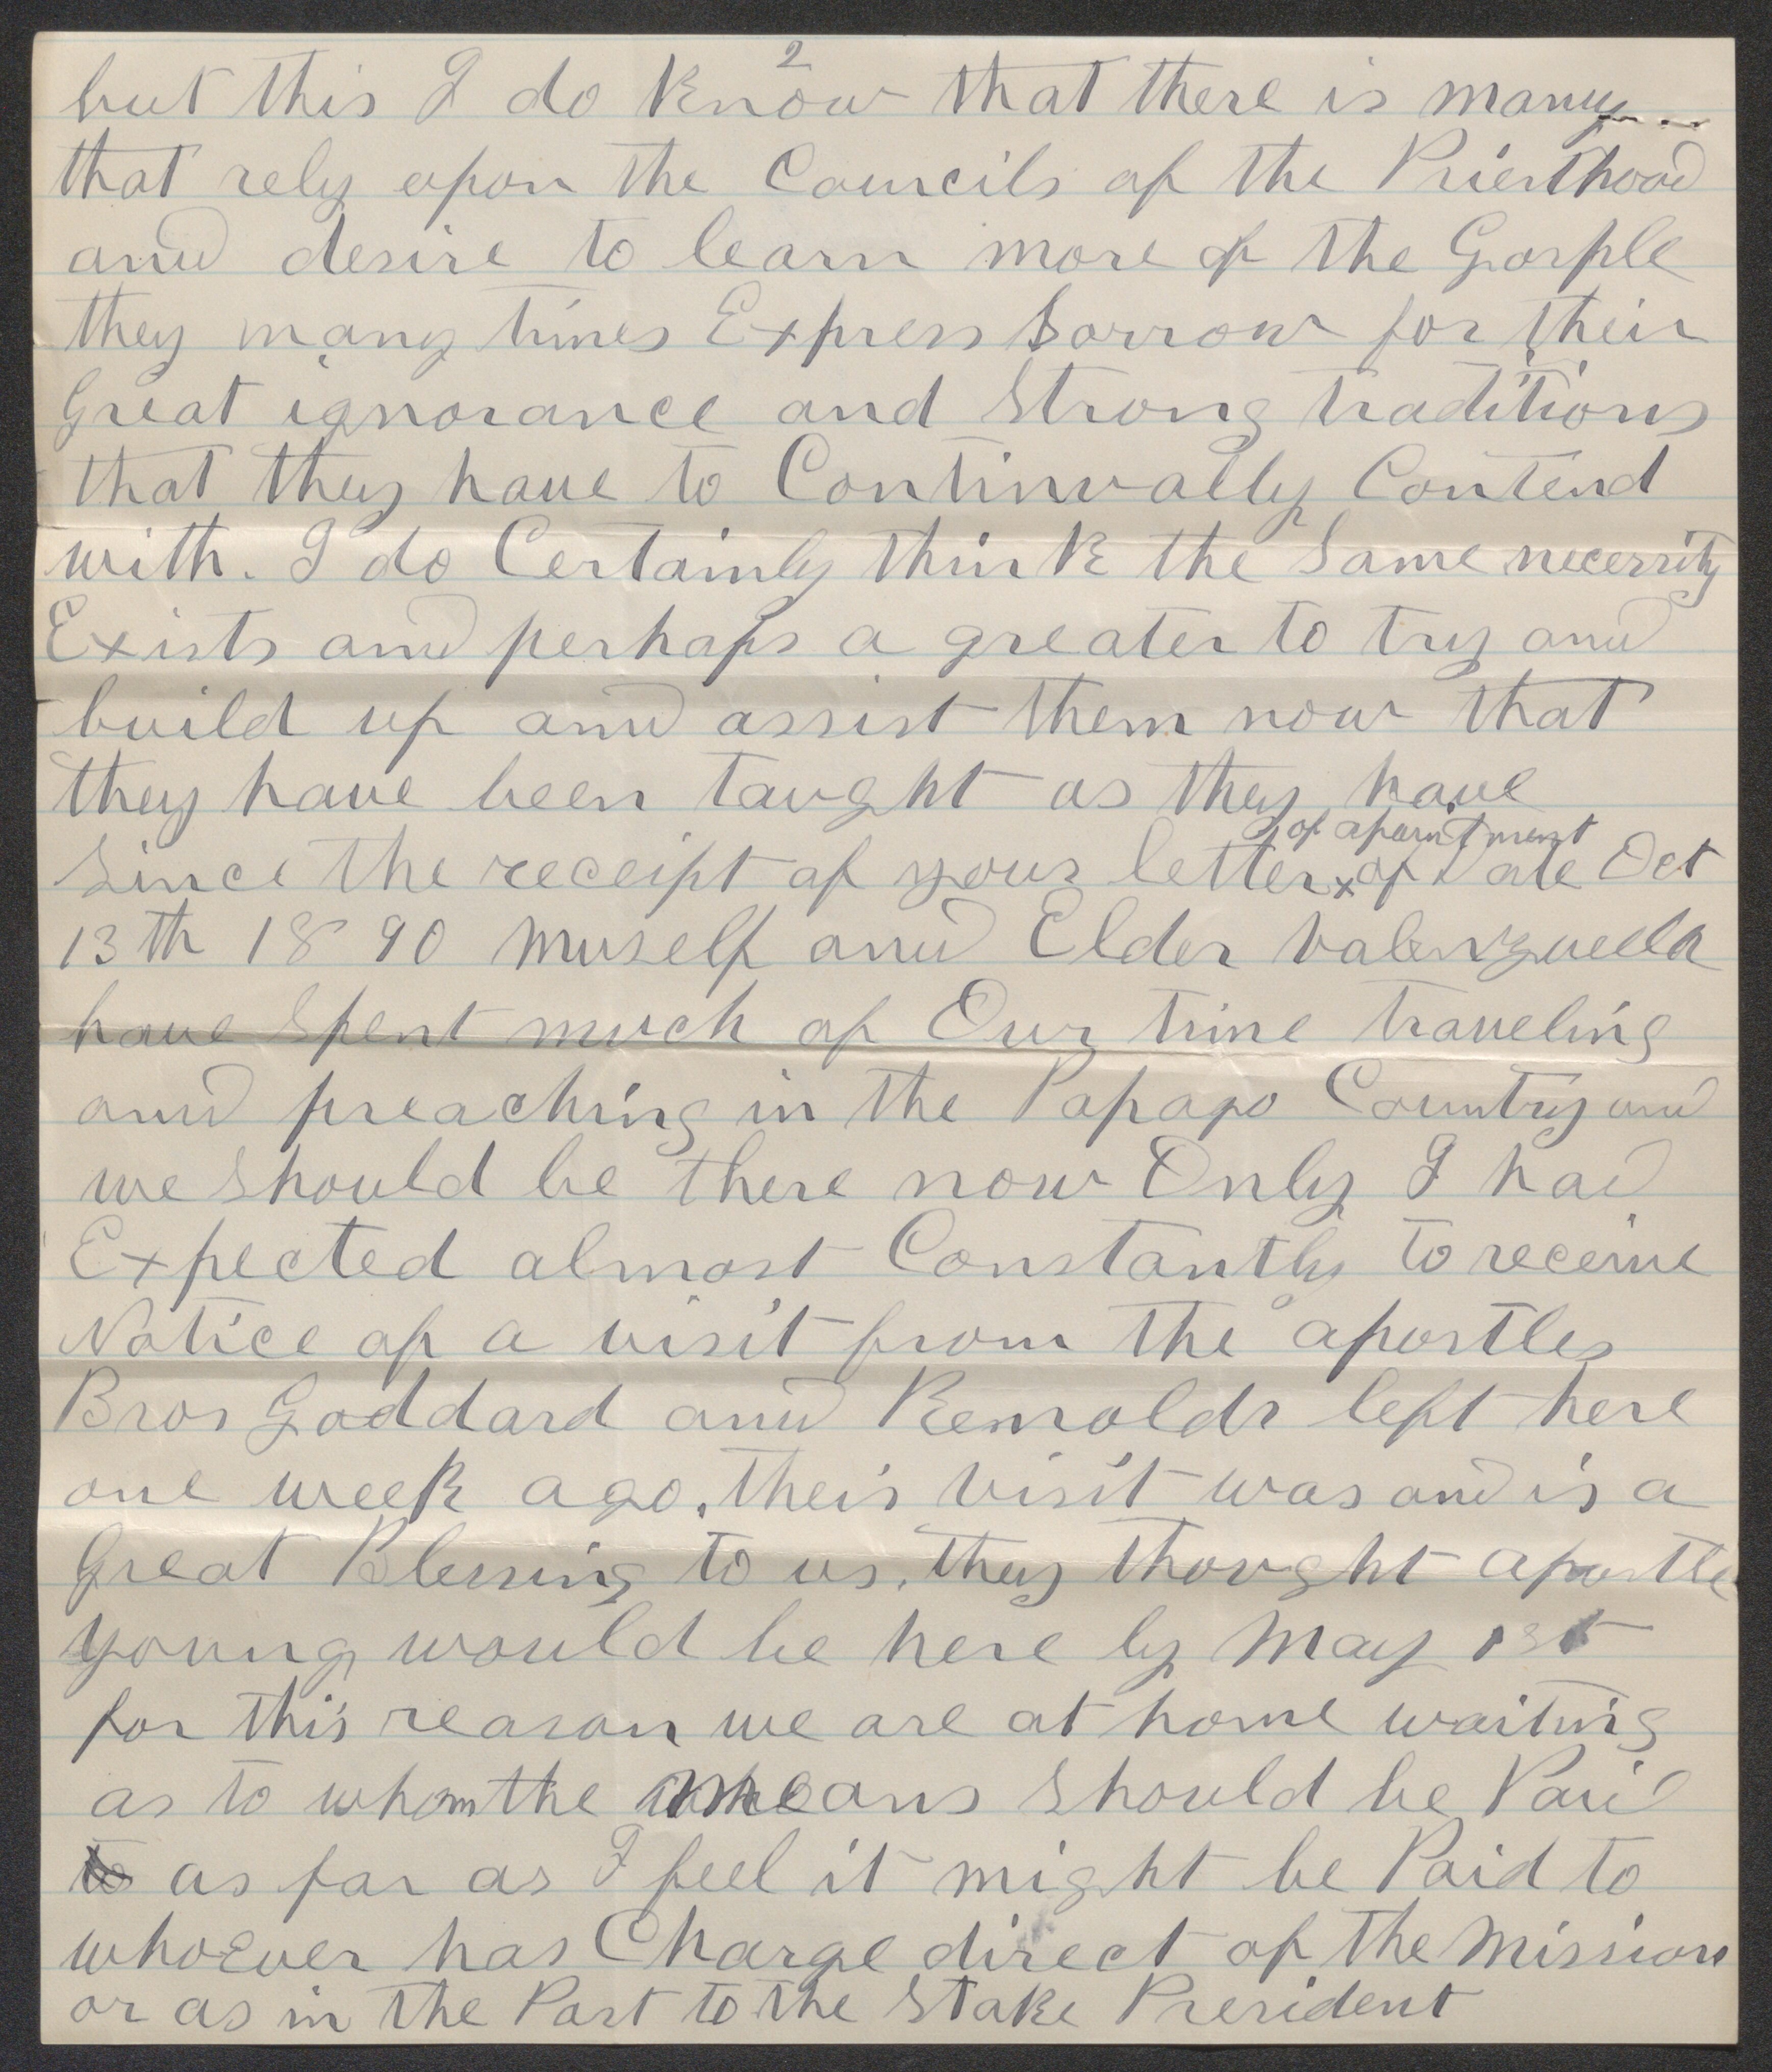 2
but this I do Know that there is many
that rely upon the Councils of the Priesthood
and desire to learn more of the Gosple
they many times Express Sorrow for their
Great ignorance and Strong traditions
that they have to Continually Contend
with. I do Certainly think the Same necessity
Exists and perhaps a greater to try and
build up and assist them now that
they have been taught as they have
of apointment
Since the receipt of your letter x of Date Oct
13th 1890 myself and Elder Valenzuella
have Spent much of Our time traveling
and preaching in the Papago Country and
we Should be there now Only I had
Expected almost Constantly to receive
Notice of a visit from the apostles
Bros Goddard and Renolds left here
one week ago. their visit was and is a
Great Blessing to us. they thought apostle
young would be here by May 1st
for this reason we are at home waiting
as to whom the means Should be Paid
to as far as I feel it might be Paid to
whoEver has Charge direct of the Mission
or as in the Past to the Stake President